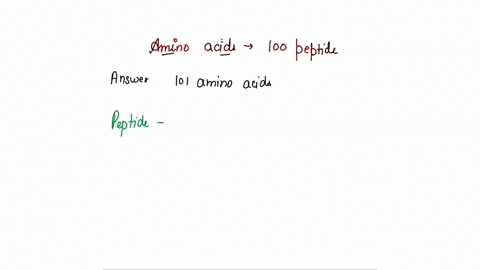 Amino acids → 100 peptide
Answer 101 amino acids
Peptide -